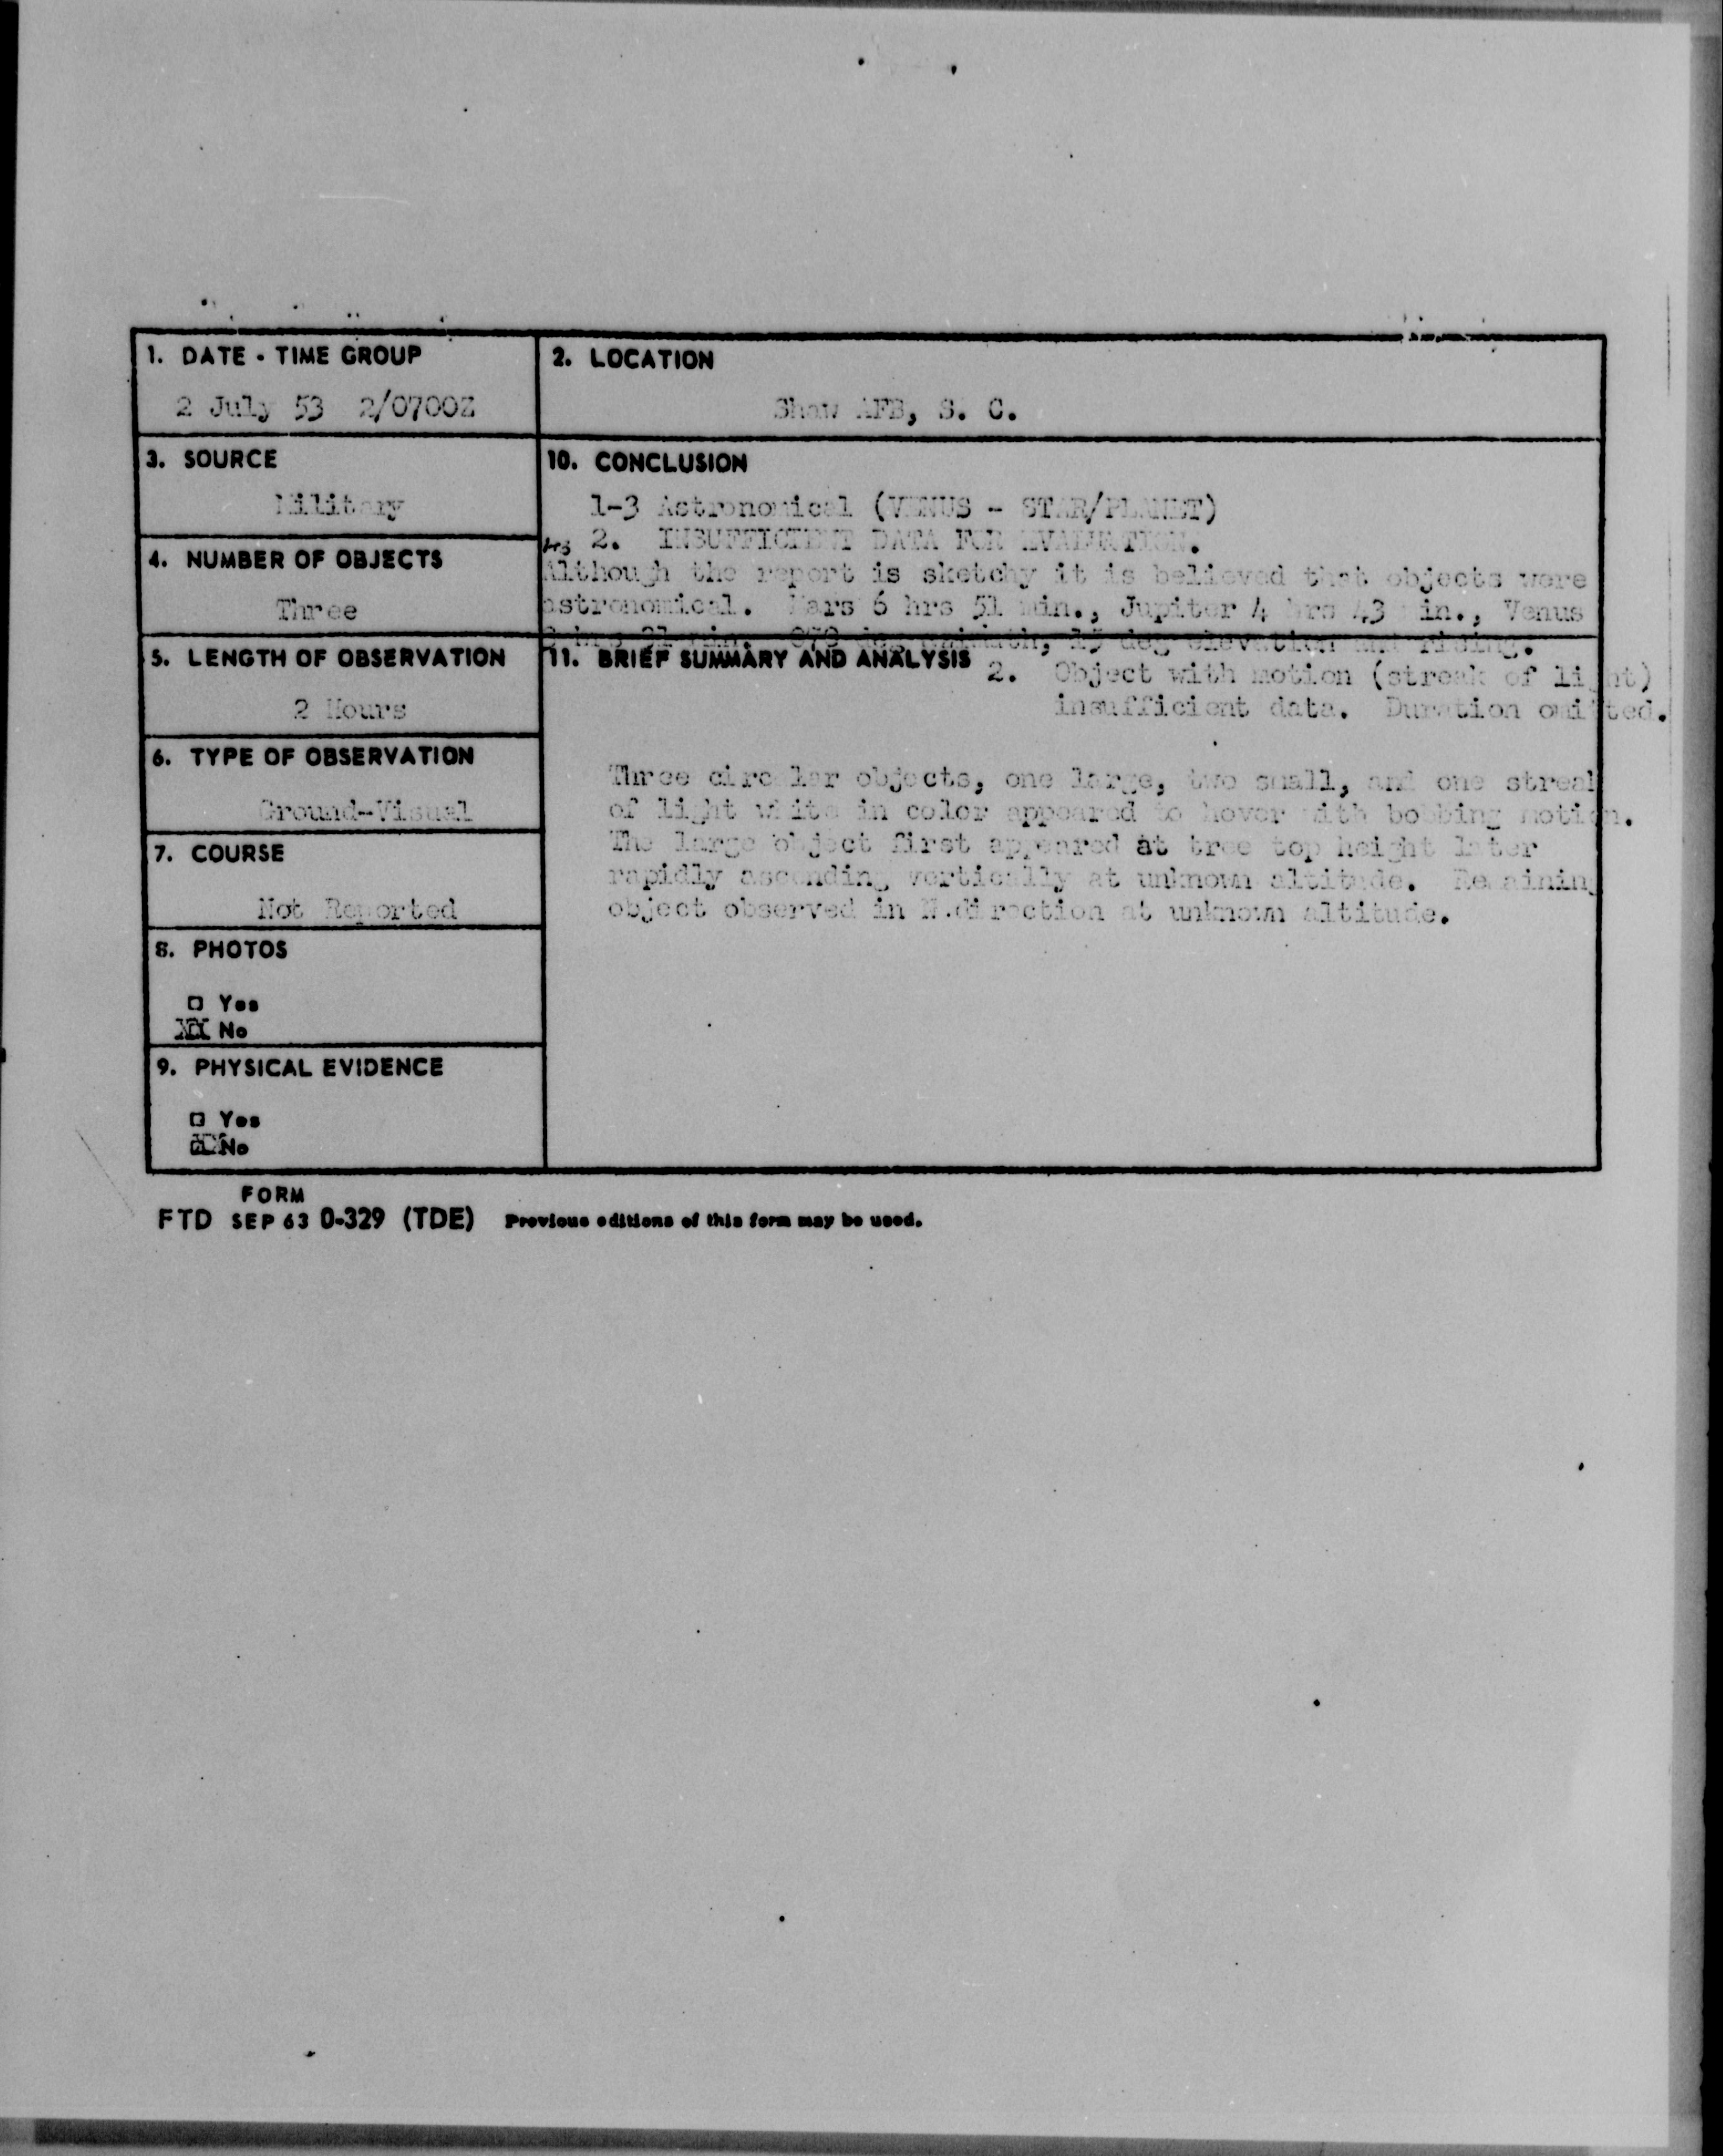 1. DATE - TIME GROUP
2 July 53 2/0700Z
2. LOCATION
Shaw AFB, S. C.
3. SOURCE
Military
10. CONCLUSION
1-3 Astronomical (VENUS - STAR/PLANET)
2. INSUFFICIENT DATA FOR EVALUATION.
Although the report is sketchy it is believed that objects were
astronomical. Mars 6 hrs 51 min., Jupiter 4 hrs 43 min., Venus
min. deg azimuth, 15 deg elevation and rising.
4. NUMBER OF OBJECTS
Three
5. LENGTH OF OBSERVATION
2 Hours
11. BRIEF SUMMARY AND ANALYSIS
2. Object with motion (streak of light)
insufficient data. Duration omitted.
Three circular objects, one large, two small, and one streak
of light white in color appeared to hover with bobbing motion.
The large object first appeared at tree top height later
rapidly ascending vertically at unknown altitude. Remaining
object observed in N.direction at unknown altitude.
6. TYPE OF OBSERVATION
Ground-Visual
7. COURSE
Not Reported
8. PHOTOS
□ Yes
XX No
9. PHYSICAL EVIDENCE
□ Yes
□ No
FORM
FTD SEP 63 0-329 (TDE) Previous editions of this form may be used.